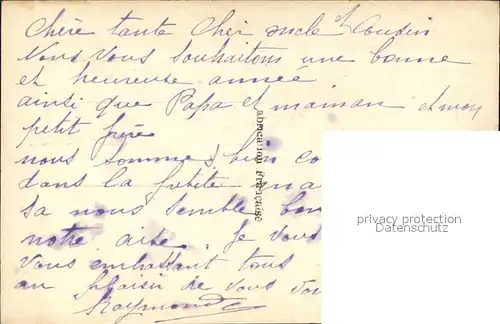 chère tante Cher oncle et Cousin
Nous Vous souhaitons une bonne
et heureuse année
ainsi que Papa et maman et mon
petit frère
nous somme bien
dans la petite
sa nous semble
notre aise. Je Vous
Vous embrassant tous
au plaisir de vous
Raymonde
abrication Française
privacy protection
Datenschutz